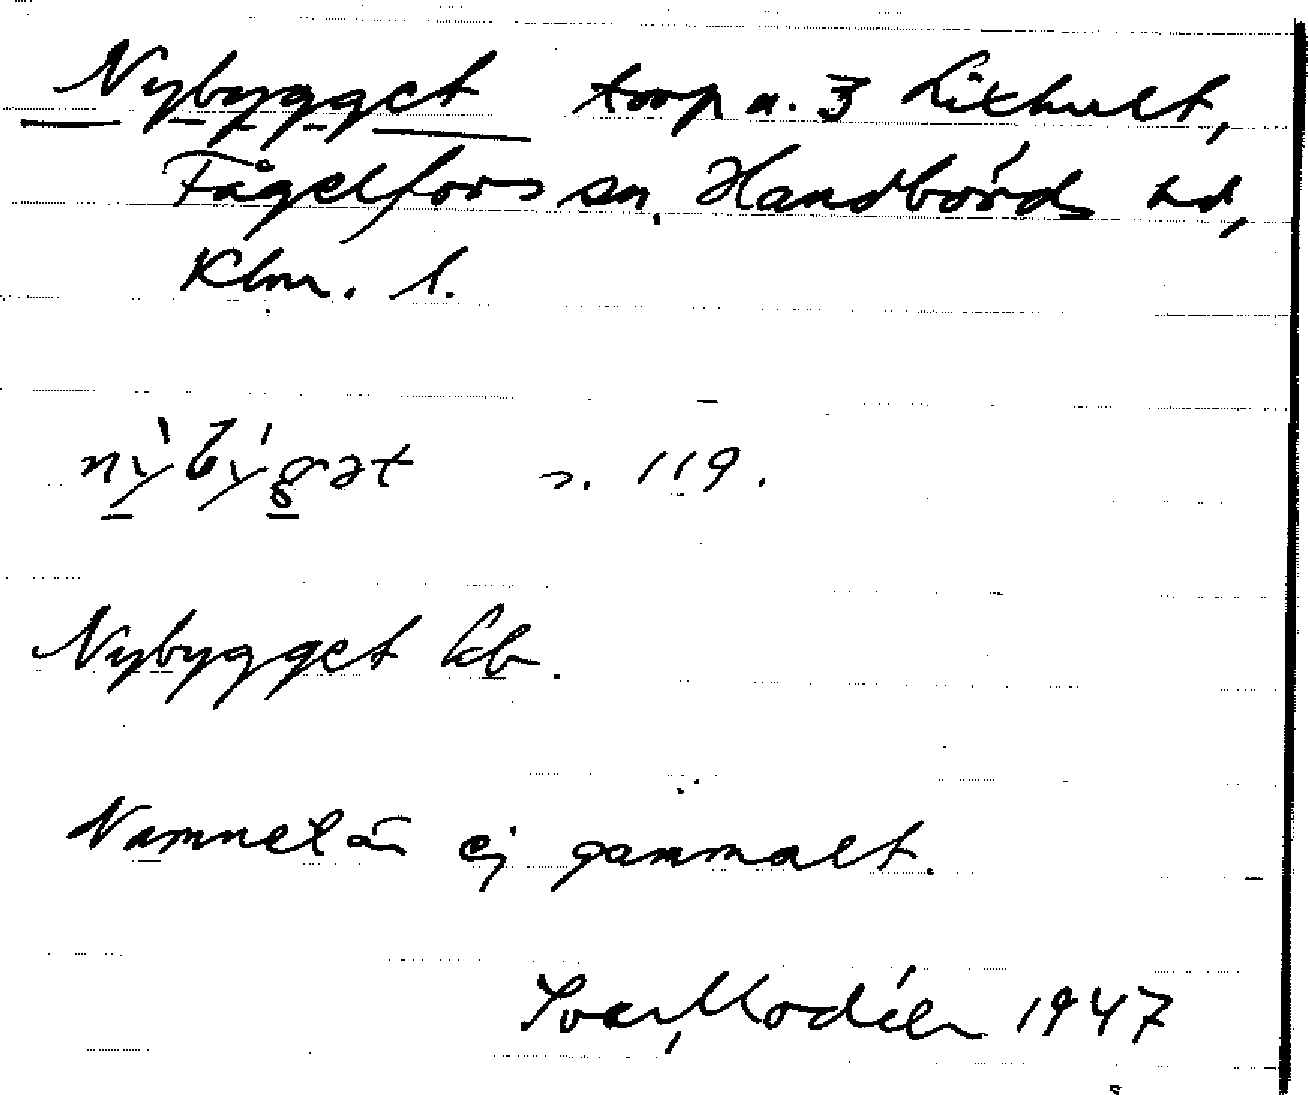 Nybygget torp u. 3 Lixhult,
Fågelfors sn, Handbörds hd,
Klm. l.
s. 119.
Nybygget kb.
Namnet är ej gammalt.
Ivar Modéer 1947